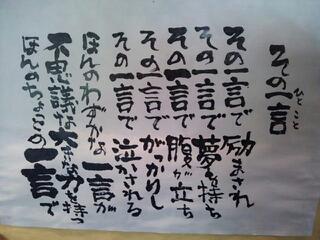 その一言
ひとこと
その一言で 励まされ
その一言で 夢を持ち
その一言で 腹が立ち
その一言で がっかりし
その一言で 泣かされる
ほんのわずかな 一言が
不思議な大きな力を持つ
ほんのちょっとの 一言で